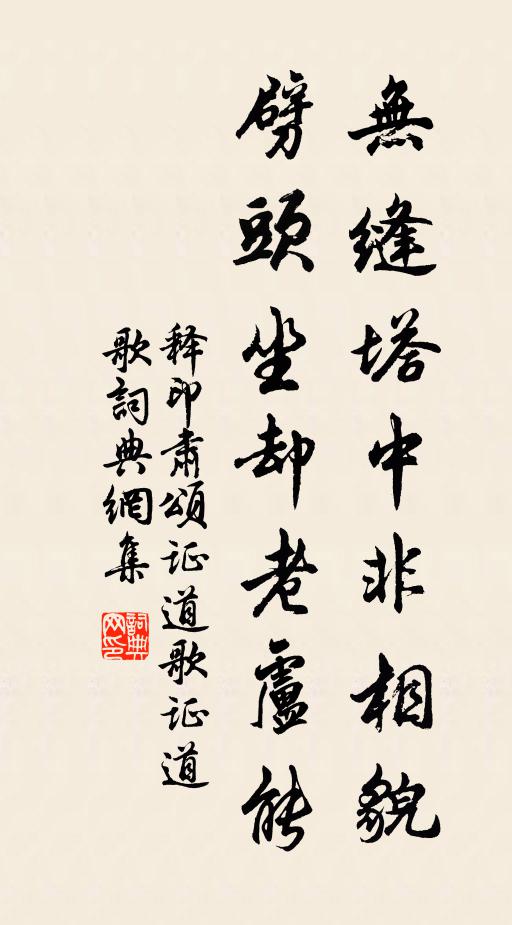 無縫塔中非相貌
劈頭坐却老盧能
释印肃頌证道歌证道
歌詞典網集
詞典
网印